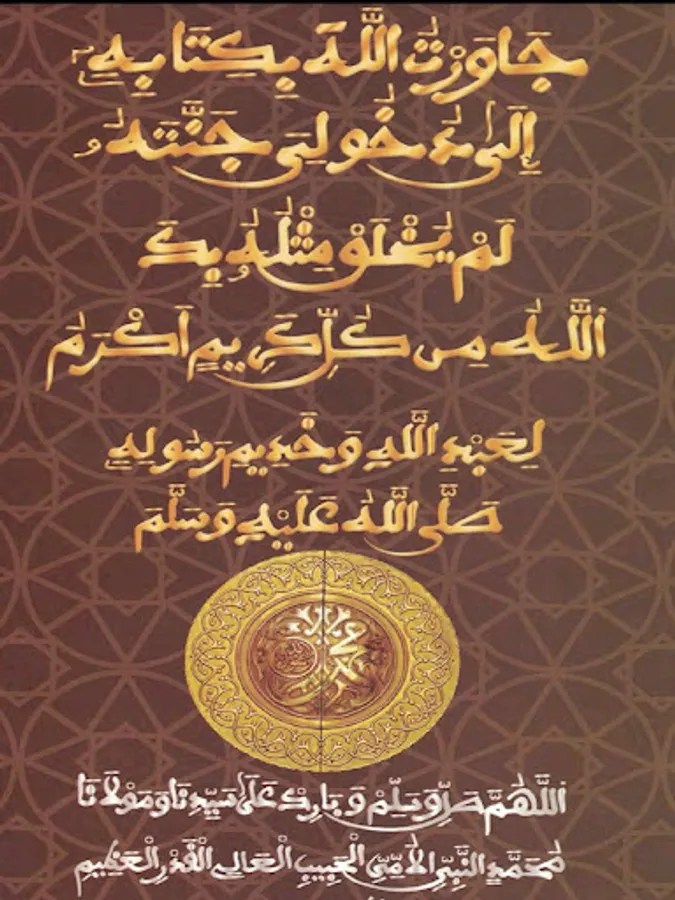 جَاوَرْتُ اللَّهَ بِكِتَابِهِ
إِلَىٰ دُخُولِي جَنَّتَهُ
لَمْ يُخْلَقْ مِثْلُهُ
اللَّهُ مِن كُلِّ كَرِيمٍ اَكْرَمُ
لِعَبْدِ اللَّهِ وَخَدِيمِ رَسُولِهِ
صَلَّى اللَّهُ عَلَيْهِ وَسَلَّمَ
محمد
اللَّهُمَّ صَلِّ وَسَلِّمْ وَبَارِكْ عَلَىٰ سَيِّدِنَا وَمَوْلَانَا
مُحَمَّدٍ النَّبِيِّ الْاُمِّيِّ الْحَبِيبِ الْعَالِي الْقَدْرِ الْعَظِيمِ